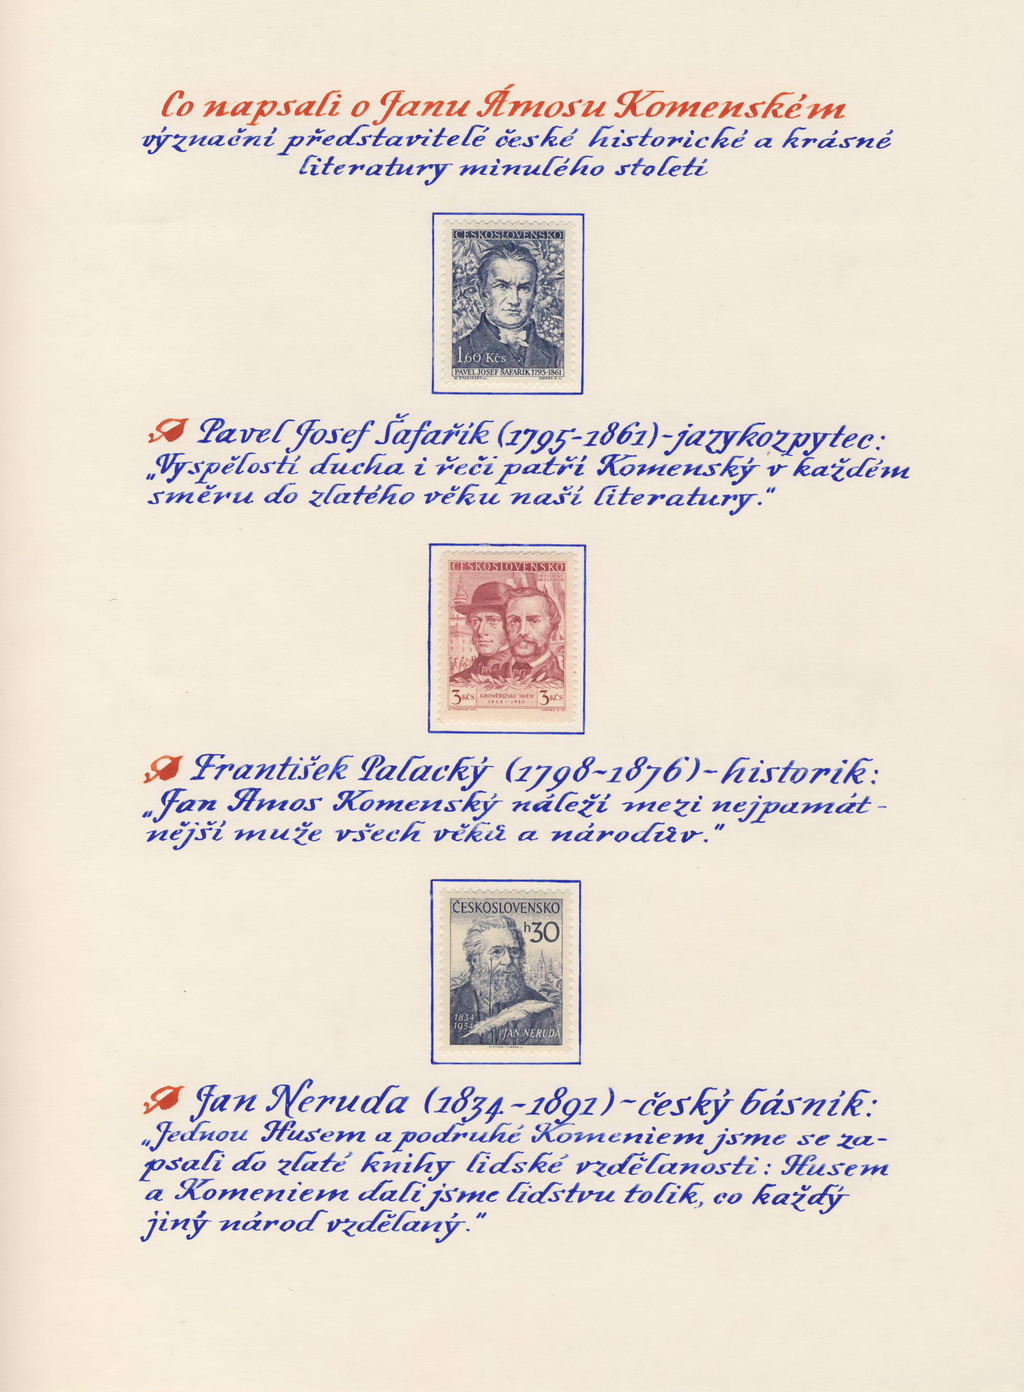 Co napsali o Janu Ámosu Komenském
význační představitelé české historické a krásné
literatury minulého století
ČESKOSLOVENSKO
1,60 Kčs
PAVEL JOSEF ŠAFAŘÍK 1795-1861
Pavel Josef Šafařík (1795-1861)-jazykozpytec:
„Vyspělostí ducha i řečí patří Komenský v každém
směru do zlatého věku naší literatury."
ČESKOSLOVENSKO
3 KČS KROMĚŘÍŽSKÝ SNĚM 3 KČS
1848-1948
František Palacký (1798-1876)-historik:
„Jan Ámos Komenský náleží mezi nejpamát-
nější muže všech věků a národův."
ČESKOSLOVENSKO
h30
1834
1954
JAN NERUDA
Jan Neruda (1834-1891)-český básník:
„Jednou Husem a podruhé Komeniem jsme se za-
psali do zlaté knihy lidské vzdělanosti: Husem
a Komeniem dali jsme lidstvu tolik, co každý
jiný národ vzdělaný."